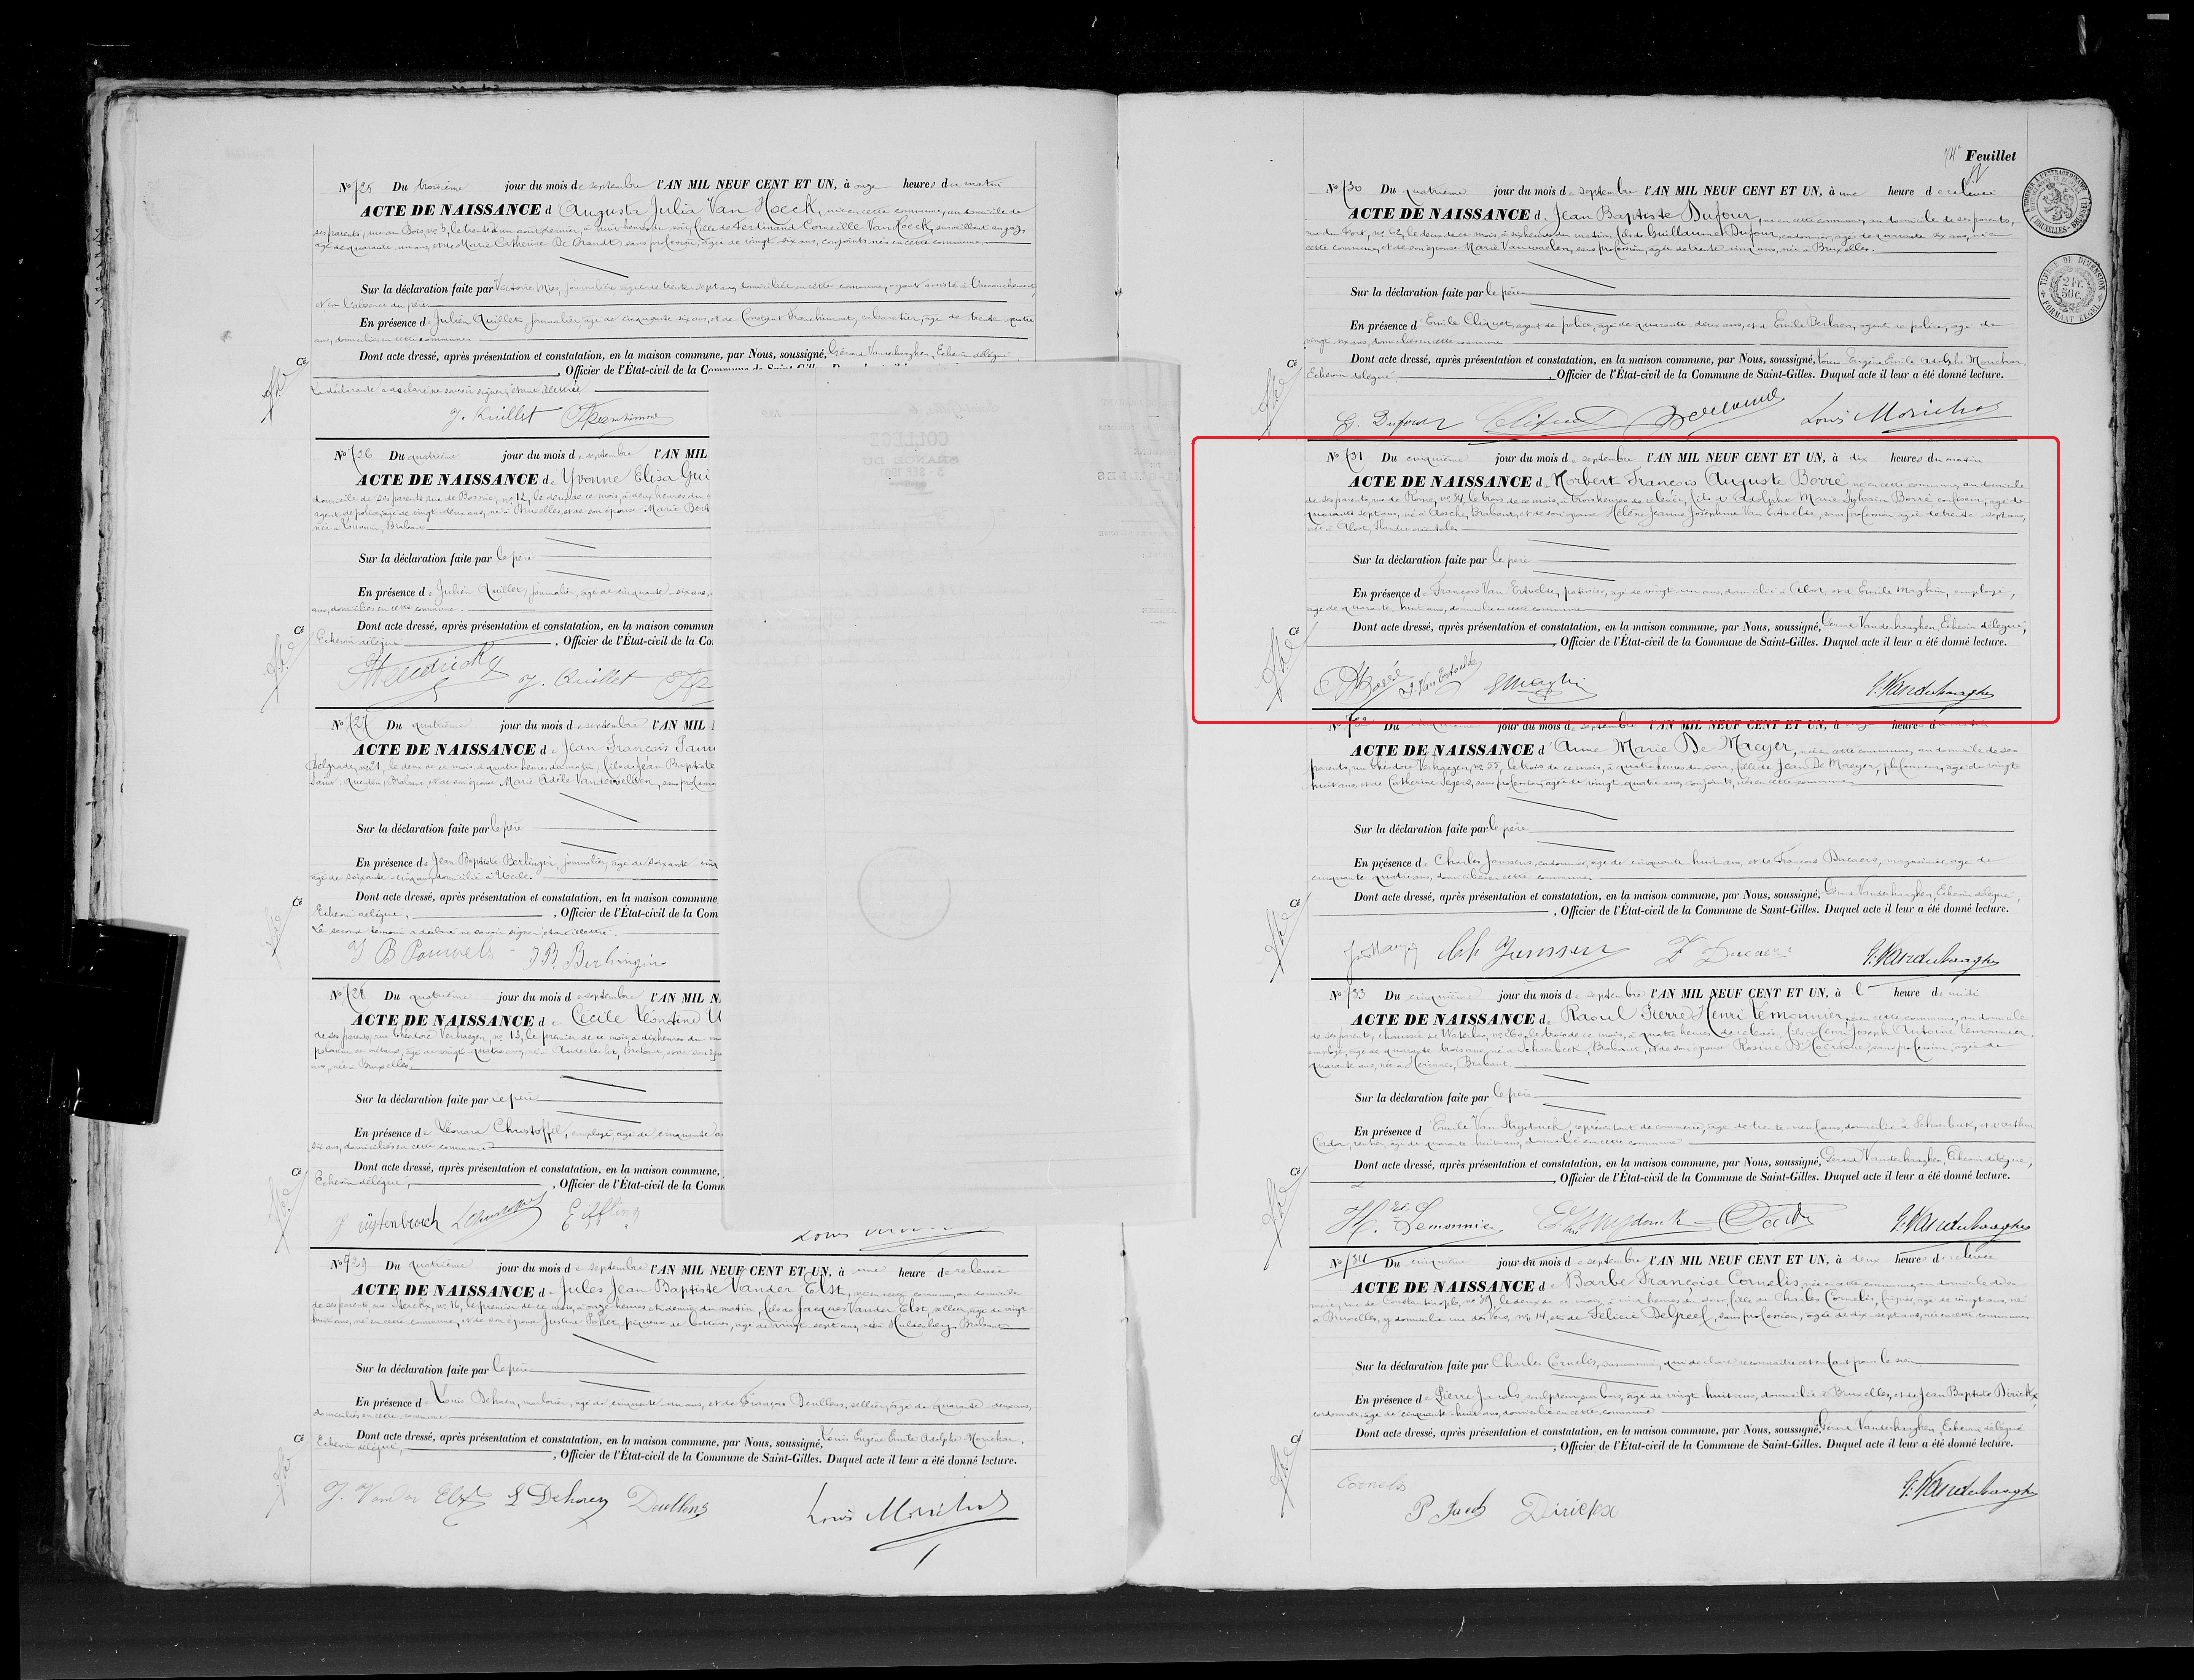 Nº 725 Du troisième jour du mois de septembre l'AN MIL NEUF CENT ET UN, à onze heures du matin
ACTE DE NAISSANCE d'Augusta Julia Van Hoeck, née en cette commune, au domicile de
ses parents, rue du Bois, nº 3, le trente et un août dernier, à huit heures du soir, fille de Ferdinand Corneille Van Hoeck, surveillant au gaz,
âgé de quarante un ans, et de Marie Catherine De Brandt, sans profession, âgée de vingt six ans, conjoints, nés en cette commune.
Sur la déclaration faite par Victorine Mies, journalière, âgée de trente sept ans, domiciliée en cette commune, ayant assisté à l'accouchement,
et en l'absence du père
En présence de Julien Quillet, journalier, âgé de cinquante six ans, et de Constant Franchimont, cabaretier, âgé de trente quatre
ans, domiciliés en cette commune
Dont acte dressé, après présentation et constatation, en la maison commune, par Nous, soussigné, Gérard Vanderhaeghen, Echevin délégué
, Officier de l'État-civil de la Commune de Saint-Gilles. D
La déclarante a déclaré ne savoir signer, étant illettrée
J. Quillet
Nº 726 Du quatrième jour du mois de septembre l'AN MIL
ACTE DE NAISSANCE de Yvonne Elisa Gui
domicile de ses parents rue de Bosnie, nº 12, le deux de ce mois, à deux heures du
agent de police, âgé de vingt deux ans, né à Bruxelles, et de son épouse Marie
née à Louvain, Brabant
Sur la déclaration faite par le père
En présence de Julien Quillet, journalier, âgé de cinquante six ans,
ans, domiciliés en cette commune.
Dont acte dressé, après présentation et constatation, en la maison commun
Echevin délégué , Officier de l'État-civil de la Co
J. Quillet
Nº 727 Du quatrième jour du mois de septembre l'AN MIL
ACTE DE NAISSANCE de Jean François Pauw
Belgrade, nº 21, le deux de ce mois, à quatre heures du matin, fils de Jean Baptiste
Brabant, et de son épouse Marie Adèle sans profession
Sur la déclaration faite par le père
En présence de Jean Baptiste Berlingin, journalier, âgé de soixante cinq
âgé de soixante cinq ans, domicilié à Uccle.
Dont acte dressé, après présentation et constatation, en la maison commune
Echevin délégué, , Officier de l'État-civil de la Com
Le second témoin a déclaré ne savoir signer, étant illettré.
J B Pauwels J B. Berlingin
Nº 728 Du quatrième jour du mois de septembre l'AN MIL N
ACTE DE NAISSANCE de Cécile Léontine U
de ses parents, rue Théodore Verhaegen, nº 13, le premier de ce mois, à dix heures du
né à Anderlecht, Brabant
ans, née à Bruxelles.
Sur la déclaration faite par le père
En présence de Léonard Christoffel, employé, âgé de cinquante
six ans, domiciliés en cette commune
Dont acte dressé, après présentation et constatation, en la maison commune,
Echevin délégué, , Officier de l'État-civil de la Comm
Nº 729 Du quatrième jour du mois de septembre l'AN MIL NEUF CENT ET UN, à une heure de relevée
ACTE DE NAISSANCE de Jules Jean Baptiste Vander Elst, né en cette commune, au domicile
de ses parents, rue Sterckx, nº 16, le premier de ce mois, à onze heures et demie du matin, fils de Jacques Vander Elst, sellier, âgé de vingt
huit ans, né en cette commune, et de son épouse Justine piqueuse de bottines, âgée de vingt sept ans, née à Huldenberg, Brabant
Sur la déclaration faite par le père
En présence de Louis Dehaen, marbrier, âgé de cinquante un ans, et de François Deullens, sellier, âgé de quarante deux ans,
domiciliés en cette commune
Dont acte dressé, après présentation et constatation, en la maison commune, par Nous, soussigné, Louis Eugène Emile Adolphe Morichar,
Echevin délégué, , Officier de l'État-civil de la Commune de Saint-Gilles. Duquel acte il leur a été donné lecture.
J. Vander Elst L Dehaen Deullens Louis Morichar
74e Feuillet
Nº 730 Du quatrième jour du mois de septembre l'AN MIL NEUF CENT ET UN, à une heure de relevée
ACTE DE NAISSANCE de Jean Baptiste Dufour, né en cette commune, au domicile de ses parents,
rue du Fort, nº 62, le deux de ce mois, à six heures du matin, fils de Guillaume Dufour, cordonnier, âgé de quarante six ans, né en
cette commune, et de son épouse Marie sans profession, âgée de trente cinq ans, née à Bruxelles.
Sur la déclaration faite par le père
En présence d'Emile Cliquet, agent de police, âgé de quarante deux ans, et d'Emile agent de police, âgé de
vingt six ans, domiciliés en cette commune
Dont acte dressé, après présentation et constatation, en la maison commune, par Nous, soussigné, Louis Eugène Emile Adolphe Morichar,
Echevin délégué , Officier de l'État-civil de la Commune de Saint-Gilles. Duquel acte il leur a été donné lecture.
G. Dufour Louis Morichar
TIMBRE DE DIMENSION
2 Fr. 50 c.
FORMAAT ZEGEL
Nº 731 Du cinquième jour du mois de septembre l'AN MIL NEUF CENT ET UN, à dix heures du matin
ACTE DE NAISSANCE de Norbert François Auguste Borré né en cette commune, au domicile
de ses parents rue de Rome, nº 34, le trois de ce mois, à trois heures de relevée, fils d'Adolphe Marie Sylvain Borré, âgé de
quarante sept ans, né à Assche, Brabant, et de son épouse Hélène Jeanne Joséphine Van Estvelde, sans profession, âgée de trente sept ans,
née à Alost, Flandre orientale
Sur la déclaration faite par le père
En présence de François Van Estvelde, pâtissier, âgé de vingt un ans, domicilié à Alost, et d'Emile Maghin, employé,
âgé de quarante huit ans, domicilié en cette commune
Dont acte dressé, après présentation et constatation, en la maison commune, par Nous, soussigné, Gérard Vanderhaeghen, Echevin délégué,
, Officier de l'État-civil de la Commune de Saint-Gilles. Duquel acte il leur a été donné lecture.
A Borré F. Van Estvelde E Maghin G. Vanderhaeghen
Nº 732 Du cinquième jour du mois de septembre l'AN MIL NEUF CENT ET UN, à onze heures du matin
ACTE DE NAISSANCE d'Anne Marie De Maeyer, née en cette commune, au domicile de ses
parents, rue Théodore Verhaegen, nº 55, le trois de ce mois, à quatre heures du soir, fille de Jean De Maeyer, plafonneur, âgé de vingt
huit ans, et de Catherine Segers, sans profession, âgée de vingt quatre ans, conjoints, nés en cette commune
Sur la déclaration faite par le père
En présence de Charles Janssens, cordonnier, âgé de cinquante huit ans, et de François Ducaers, magasinier, âgé de
cinquante quatre ans, domiciliés en cette commune.
Dont acte dressé, après présentation et constatation, en la maison commune, par Nous, soussigné, Gérard Vanderhaeghen, Echevin délégué,
, Officier de l'État-civil de la Commune de Saint-Gilles. Duquel acte il leur a été donné lecture.
Ch Janssens F Ducaers G. Vanderhaeghen
Nº 733 Du cinquième jour du mois de septembre l'AN MIL NEUF CENT ET UN, à l' heure de midi
ACTE DE NAISSANCE de Raoul Pierre Henri Lemonnier, né en cette commune, au domicile
de ses parents, chaussée de Waterloo, nº 260, le trois de ce mois, à quatre heures de relevée, fils d'Henri Joseph Antoine Lemonnier,
employé, âgé de quarante trois ans, né à Schaerbeek, Brabant, et de son épouse Rosine D'Haerdene, sans profession, âgée de
quarante ans, née à Brabant
Sur la déclaration faite par le père
En présence d'Emile Van Strydonck, représentant de commerce, âgé de trente neuf ans, domicilié à Schaerbeek, et d'Arthur
Cordon, rentier, âgé de quarante huit ans, domicilié en cette commune
Dont acte dressé, après présentation et constatation, en la maison commune, par Nous, soussigné, Gérard Vanderhaeghen, Echevin délégué,
, Officier de l'État-civil de la Commune de Saint-Gilles. Duquel acte il leur a été donné lecture.
H. Lemonnier E. Van Strydonck G. Vanderhaeghen
Nº 734 Du cinquième jour du mois de septembre l'AN MIL NEUF CENT ET UN, à deux heures de relevée
ACTE DE NAISSANCE de Barbe Françoise Cornelis, née en cette commune, au domicile de sa
mère, rue de Constantinople, nº 59, le deux de ce mois, à huit heures du soir, fille de Charles Cornelis, âgé de vingt ans, né
à Bruxelles, y domicilié rue des Vers, nº 14, et de Félicie Delgreef, sans profession, âgée de dix sept ans, née en cette commune
Sur la déclaration faite par Charles Cornelis, susnommé, qui déclare reconnaître cet enfant pour le sien
En présence de Pierre Jacobs, sculpteur sur bois, âgé de vingt huit ans, domicilié à Bruxelles, et de Jean Baptiste Dirickx,
cordonnier, âgé de cinquante huit ans, domicilié en cette commune
Dont acte dressé, après présentation et constatation, en la maison commune, par Nous, soussigné, Gérard Vanderhaeghen, Echevin délégué
, Officier de l'État-civil de la Commune de Saint-Gilles. Duquel acte il leur a été donné lecture.
Cornelis
P Jacobs Dirickx G. Vanderhaeghen